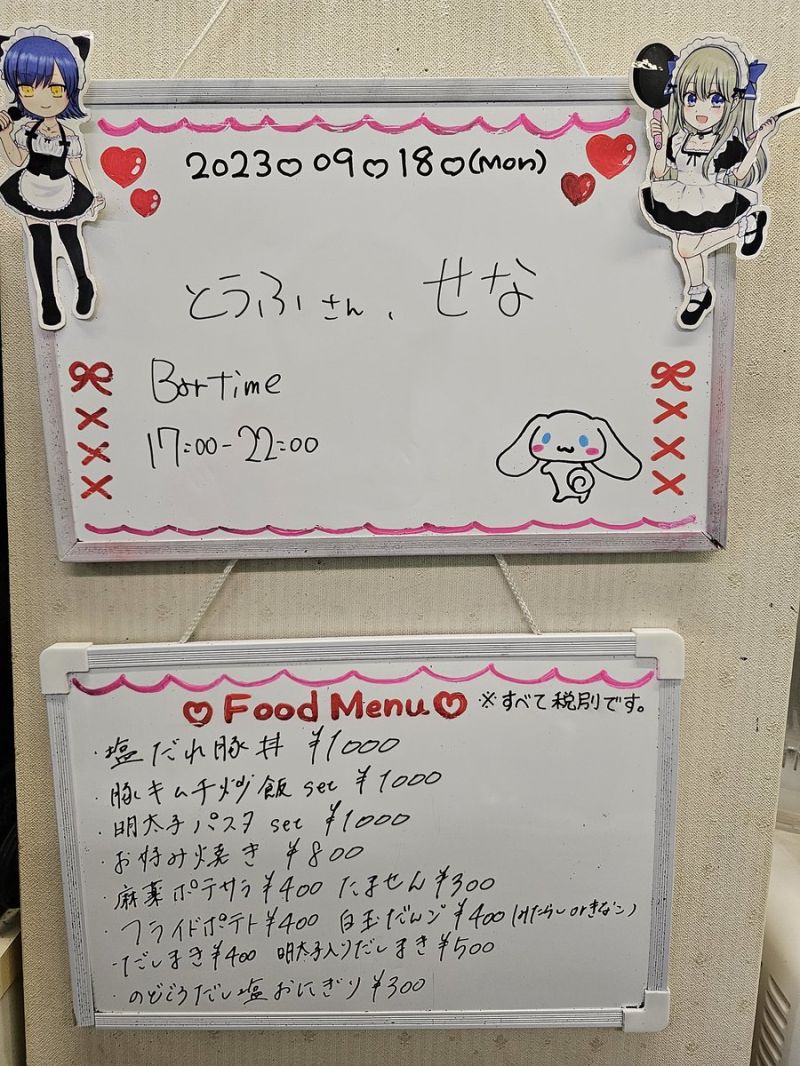 2023♡09♡18♡(Mon)
とうふさん、せな
Bar Time
17:00-22:00
♡Food Menu♡ ※すべて税別です。
・塩だれ豚丼 ¥1000
・豚キムチ炒飯 set ¥1000
・明太子パスタ set ¥1000
・お好み焼き ¥800
・麻薬ポテサラ¥400 たません¥300
・フライドポテト¥400 白玉だんご¥400(みたらしorきなこ)
・だしまき¥400 明太子入りだしまき¥500
・のどぐろだし塩おにぎり¥300